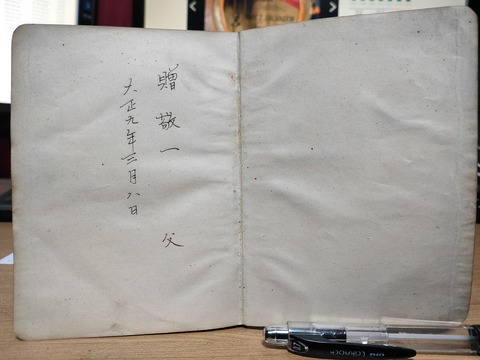 贈 敬一 父
大正九年三月八日